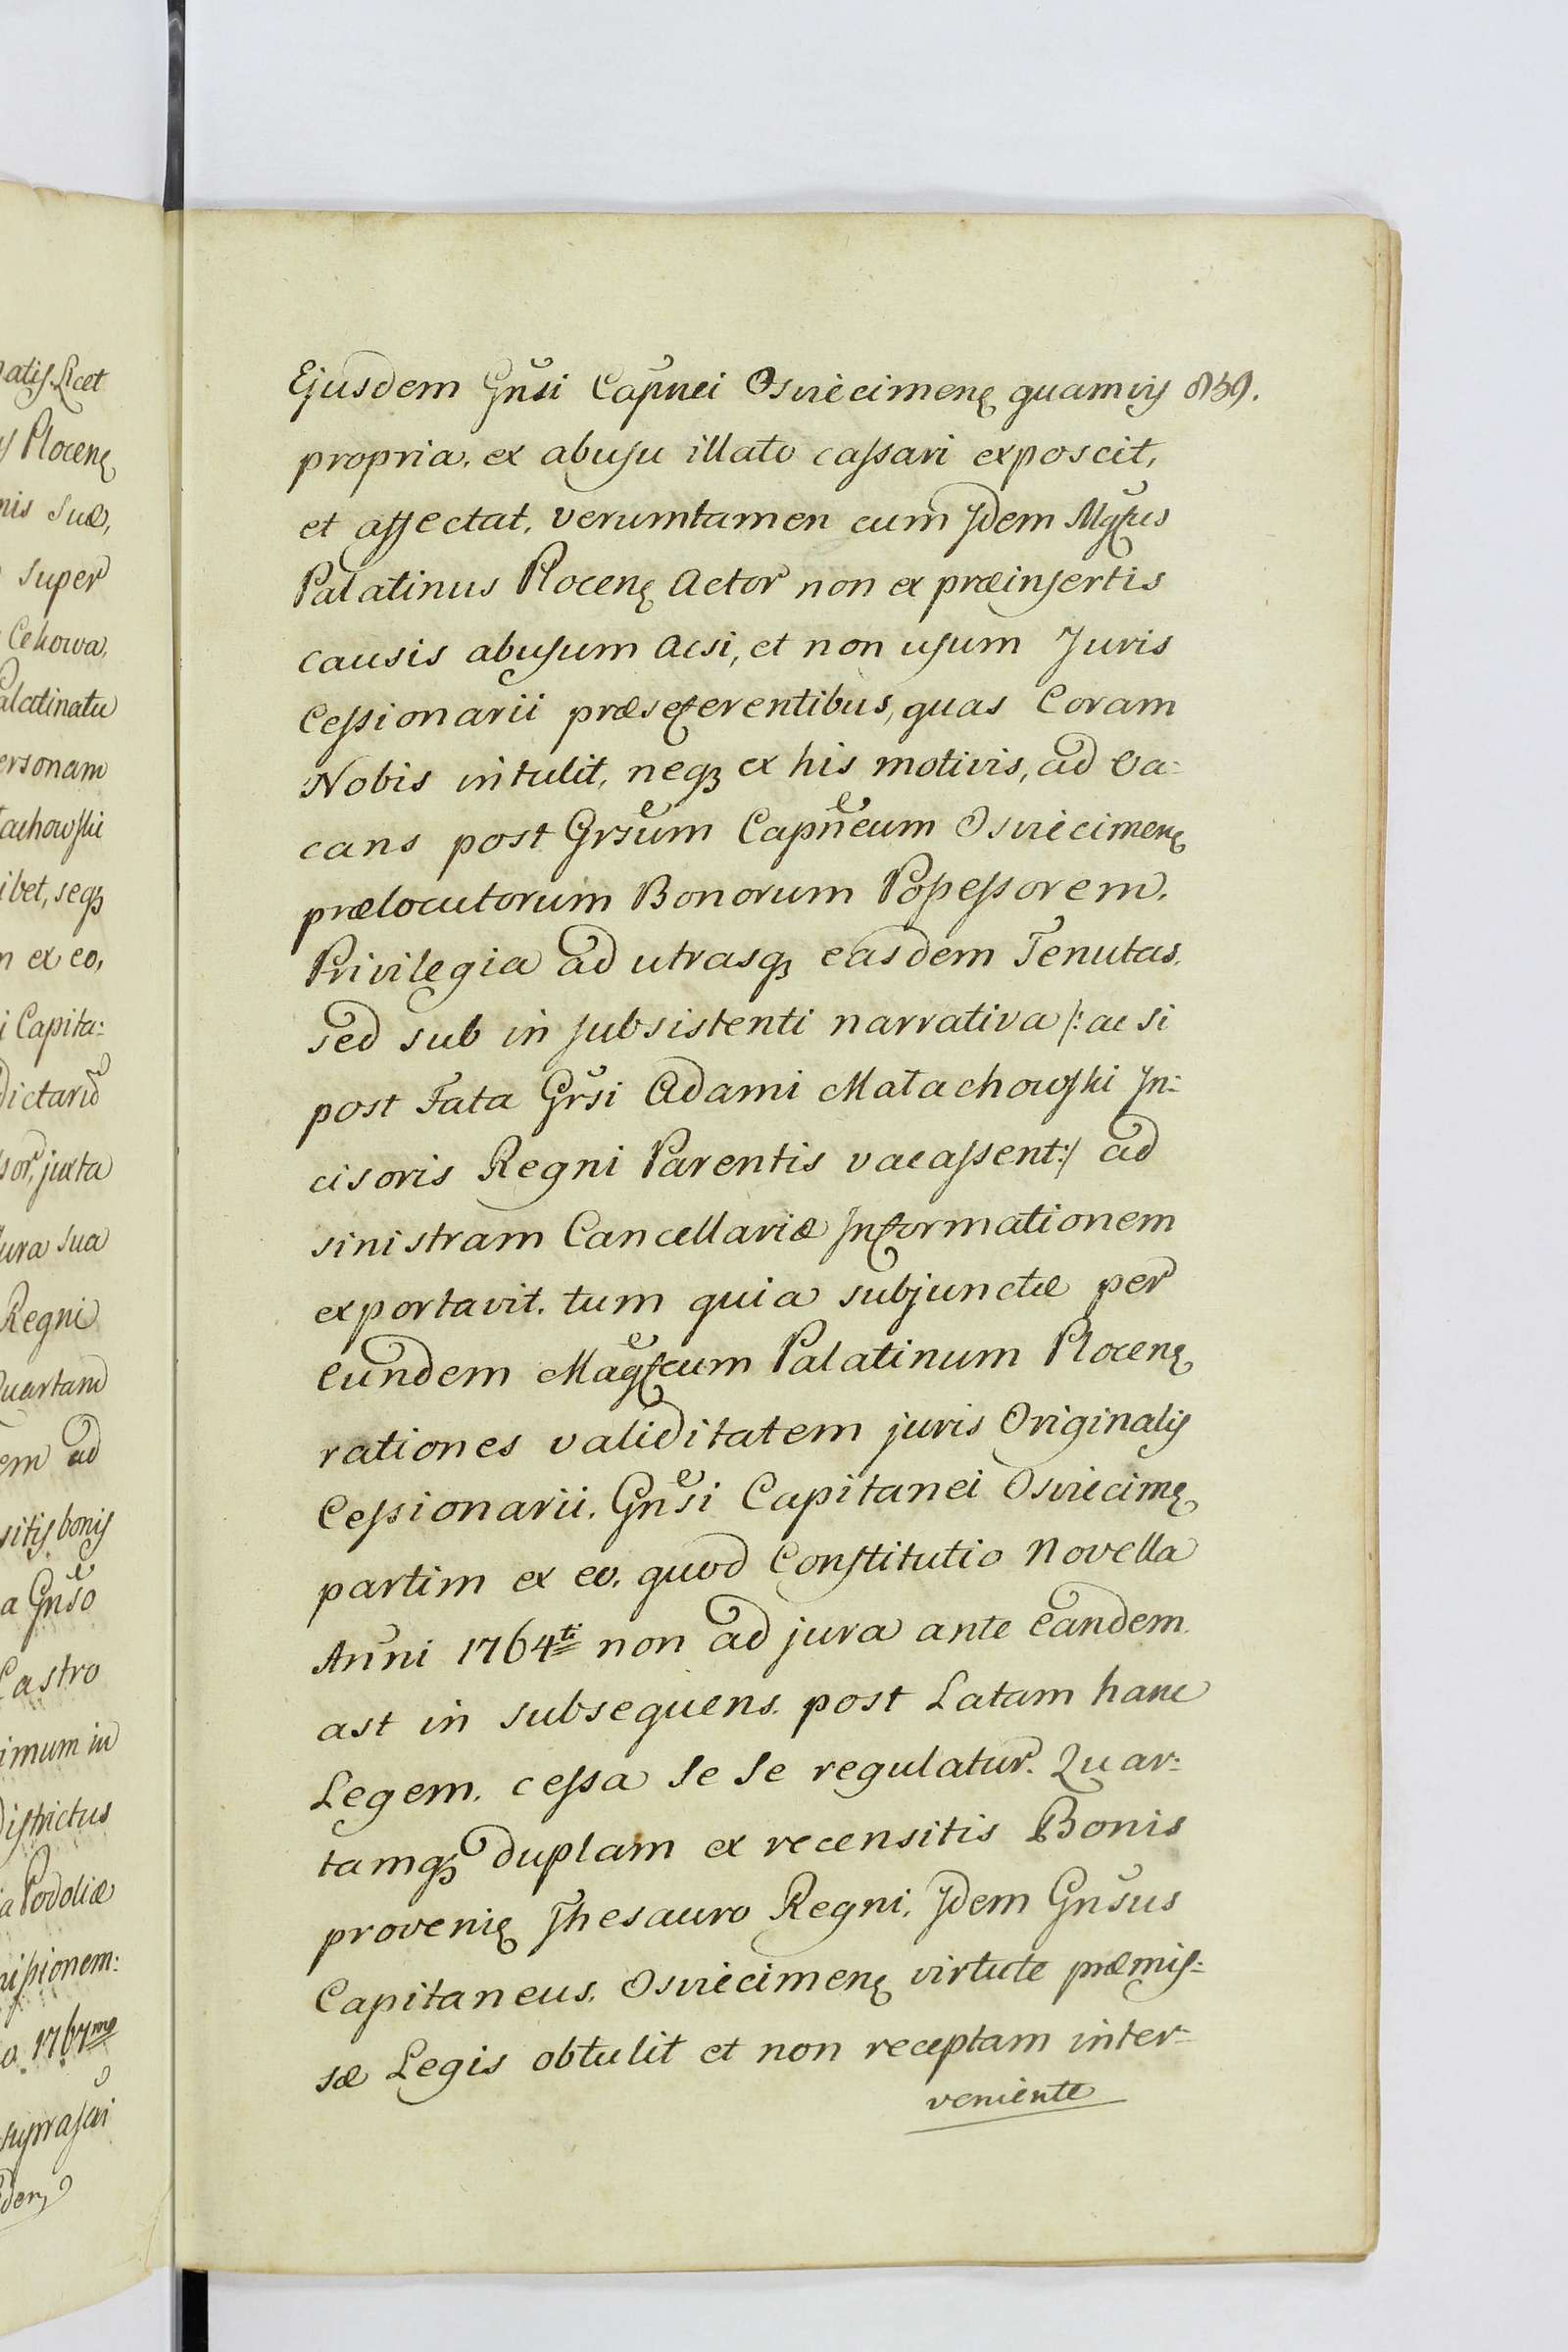 Ejusdem Gnsi Capnei Osviecimenę quamvis 859.
propria, ex abusu illato cassari exposcit,
et affectat, verumtamen cum Jdem Mgfus
Palatinus Plocenę Actor non ex præinsertis
causis abusum acsi, et non usum Juris
Cessionarii præseferentibus, quas Coram
Nobis intulit, neqꝫ ex his motivis, ad Va:
cans post Grsum Capneum Osviecimenę
prælocutorum Bonorum Possessorem,
Privilegia ad utrasqꝫ easdem Tenutas,
sed sub in subsistenti narrativa /: ac si
post Fata Grsi Adami Małachowski In:
cisoris Regni Parentis vacassent :/ ad
sinistram Cancellariæ Informationem
exportavit, tum quia subjunctæ per
Eundem Magfcum Palatinum Plocenę
rationes validitatem juris Originalis
Cessionarii, Gnsi Capitanei Osviecimę
partim ex eo, quod Constitutio Novella
Anni 1764ti non ad jura ante eandem,
ast in subsequens, post Latam hanc
Legem, cessa se se regulatur. Quar:
tamqꝫ duplam ex recensitis Bonis
provenię Thesauro Regni, Jdem Gnsus
Capitaneus, Osviecimenę virtute præmis:
sæ Legis obtulit et non receptam inter:
veniente
atis Licet
Plocenę
nis Suæ,
super
Cekowa,
alatinatu
ersonam
achowski
ibet, seqꝫ
n ex eo,
i Capita:
juxta
ura sua
Regni
uartam
em ad
sitis bonis
a Gnso
Castro
imum in
Districtus
a Podoliæ
issionem:
o 1767mo